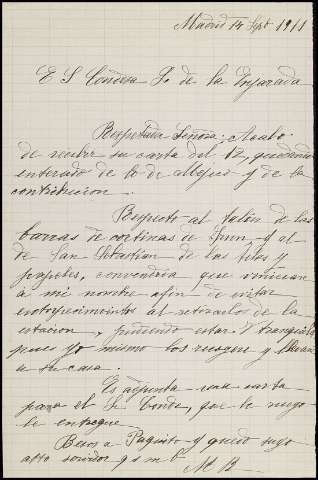 Madrid 14 Sept 1911
E. S. Condesa Vª de la Enjarada
Respetada Señora: Acabo
de recibir su carta del 12, quedando
enterado de lo de Mejico y de la
contribucion.
Respecto al talón de las
barras de cortinas de Irun, y el
de San Sebastian de las telas y
papeles, convendria que viniesen
á mi nombre afin de evitar
entorpecimientos al retirarlos de la
estacion, pudiendo estar V tranquila
pues yo mismo los recogere y llevaré
a su casa.
Es adjunta una carta
para el Sr Conde, que le ruego
le entregue.
Besos a Paquito y quedo suyo
atto servidor q s m b
M B